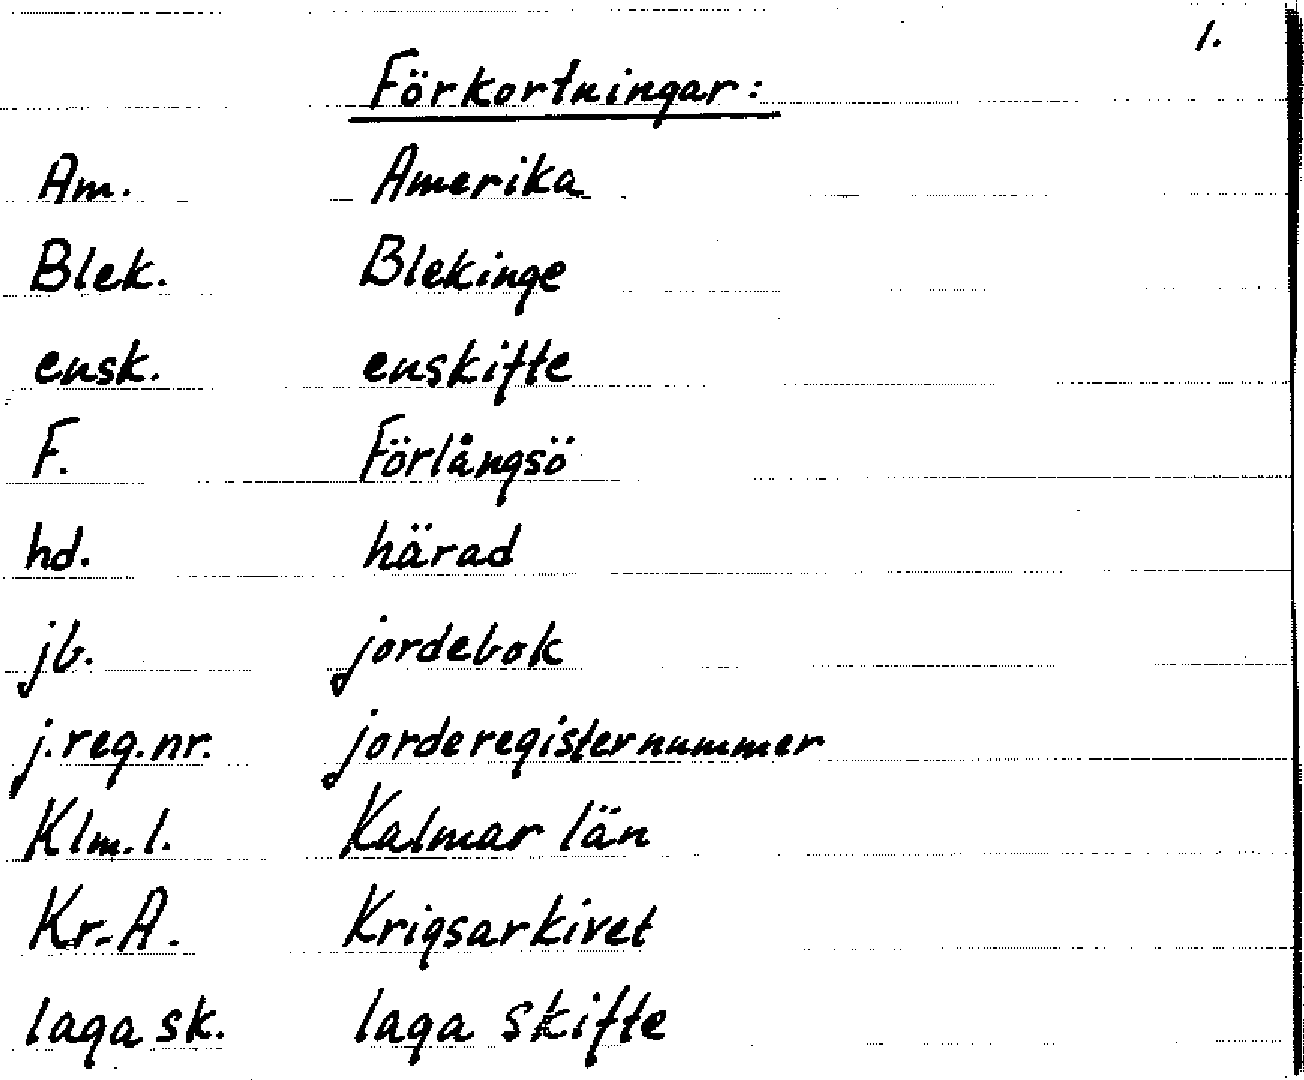 1.
Förkortningar:
Am. Amerika
Blek. Blekinge
ensk. enskifte
F. Förlångsö
hd. härad
jb. jordebok
j.reg.nr. jorderegisternummer
Klm.l. Kalmar län
Kr.A. Krigsarkivet
laga sk. laga skifte